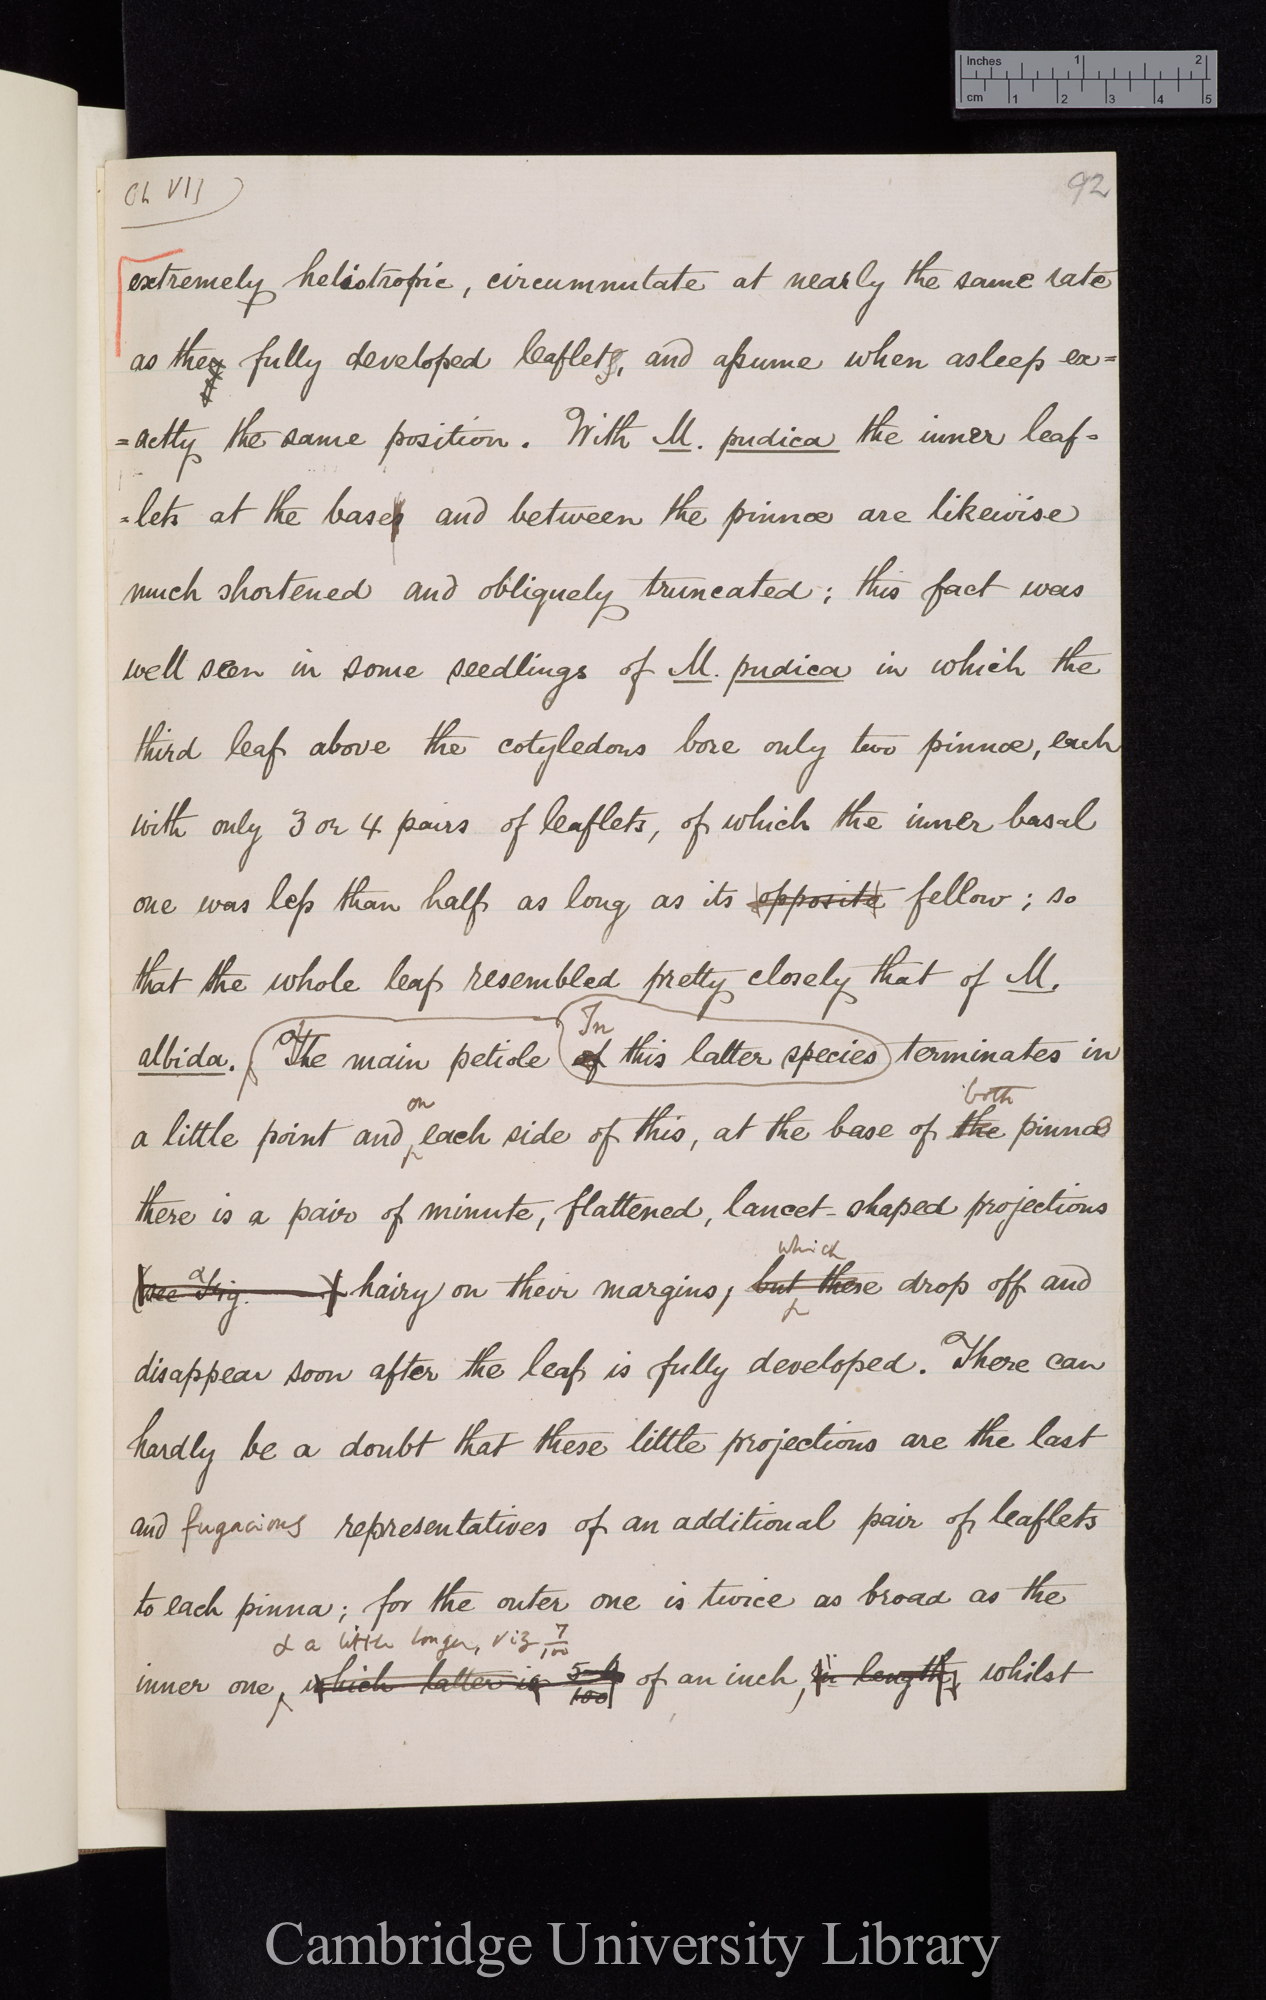 Inches 1 2
cm 1 2 3 4 5
Ch VII
92
extremely heliotropic, circumnutate at nearly the same rate
as the fully developed leaflets, and assume when asleep ex=
=actly the same position. With M. pudica the inner leaf-
=lets at the bases and between the pinnæ are likewise
much shortened and obliquely truncated; this fact was
well seen in some seedlings of M. pudica in which the
third leaf above the cotyledons bore only two pinnæ, each
with only 3 or 4 pairs of leaflets, of which the inner basal
one was less than half as long as its opposite fellow; so
that the whole leaf resembled pretty closely that of M.
In
albida. The main petiole of this latter species terminates in
on both
a little point and each side of this, at the base of the pinnæ
there is a pair of minute, flattened, lancet-shaped projections
which
(see Fig. ) hairy on their margins, but these drop off and
disappear soon after the leaf is fully developed. There can
hardly be a doubt that these little projections are the last
and fugacious representatives of an additional pair of leaflets
to each pinna; for the outer one is twice as broad as the
& a little longer, viz 7/100
inner one, which latter is 5-6/100 of an inch, in length, whilst
Cambridge University Library